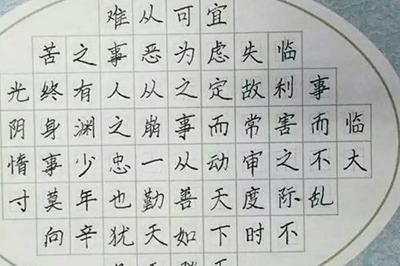 临大
事而不乱
临利害之际不
失故常审度时
宜虑定而动天下
可为之事从善如
从恶从崩一勤天
难事人之忠也犹
之有渊少年辛
苦终身事莫向
光阴惰寸